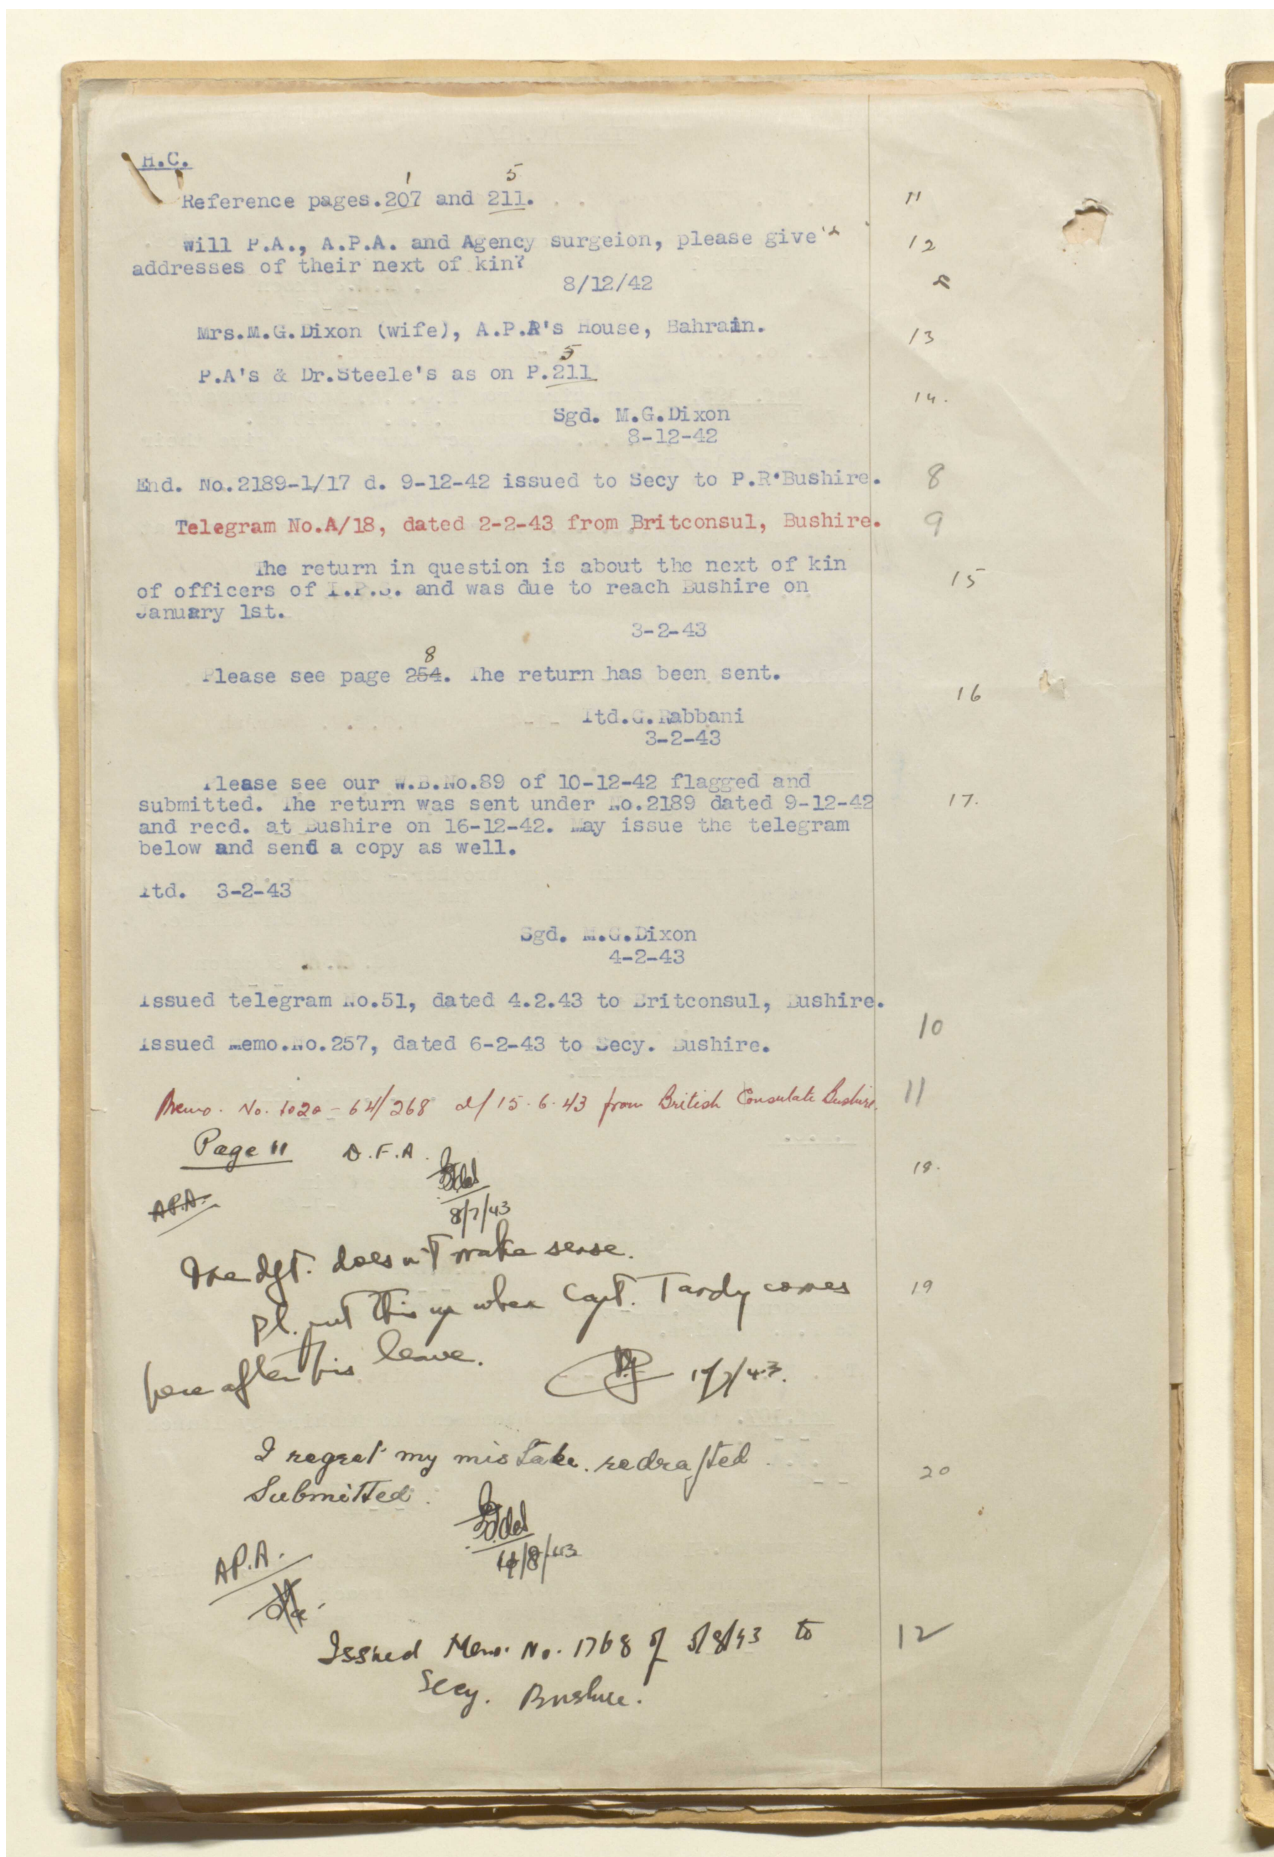 H.C.
1 5
Reference pages.207 and 211. 11
Will P.A., A.P.A. and Agency surgeion, please give 12
addresses of their next of kin?
8/12/42
Mrs.M.G.Dixon (wife), A.P.A's House, Bahrain. 13
5
P.A's & Dr.Steele's as on P.211
14.
Sgd. M.G.Dixon
8-12-42
End. No.2189-1/17 d. 9-12-42 issued to Secy to P.R.Bushire. 8
Telegram No.A/18, dated 2-2-43 from Britconsul, Bushire. 9
The return in question is about the next of kin
of officers of I.P.S. and was due to reach Bushire on 15
January 1st.
3-2-43
8
Please see page 254. The return has been sent.
16
Itd.G.Rabbani
3-2-43
Please see our W.B.No.89 of 10-12-42 flagged and
submitted. The return was sent under No.2189 dated 9-12-42 17.
and recd. at Bushire on 16-12-42. May issue the telegram
below and send a copy as well.
Itd. 3-2-43
Sgd. M.G.Dixon
4-2-43
Issued telegram No.51, dated 4.2.43 to Britconsul, Bushire.
10
Issued Memo.No.257, dated 6-2-43 to Secy. Bushire.
Memo. No. 1020-64/268 d/ 15.6.43 from British Consulate Bushire. 11
Page 11 D.F.A.
18.
A.P.A.
8/7/43
The dft. doesn't make sense.
Pl. put this up when Capt. Tandy comes 19
here after his leave.
17/7/43.
I regret my mistake. redrafted
Submitted. 20
4/8/43
A.P.A.
Issued Memo. No. 1768 of 5/8/43 to 12
Secy. Bushire.